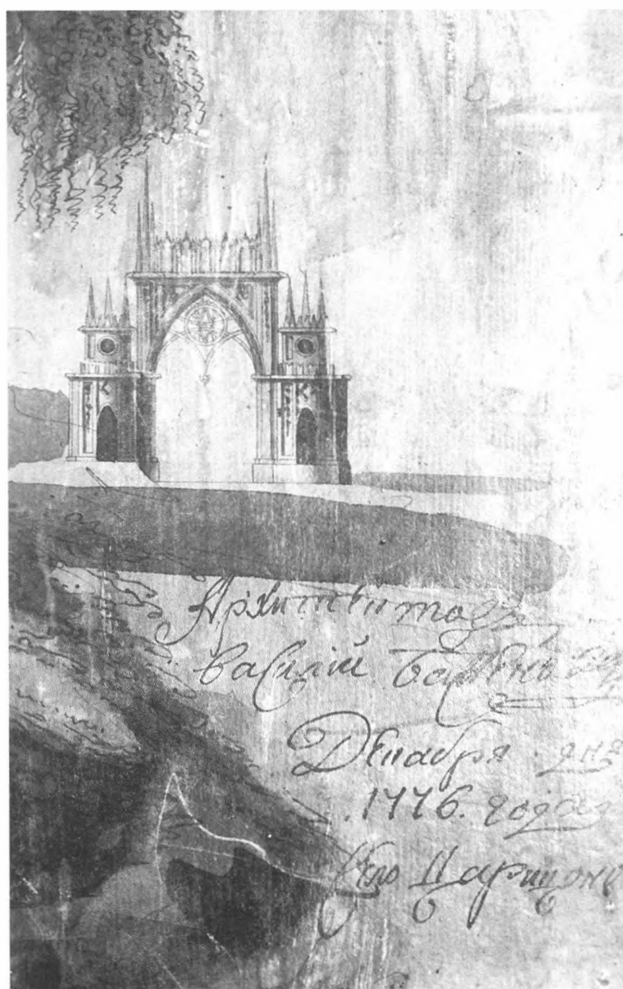 Архитектор
Василий Баженов
Декабря дня
.1776. года
Село Царицоно